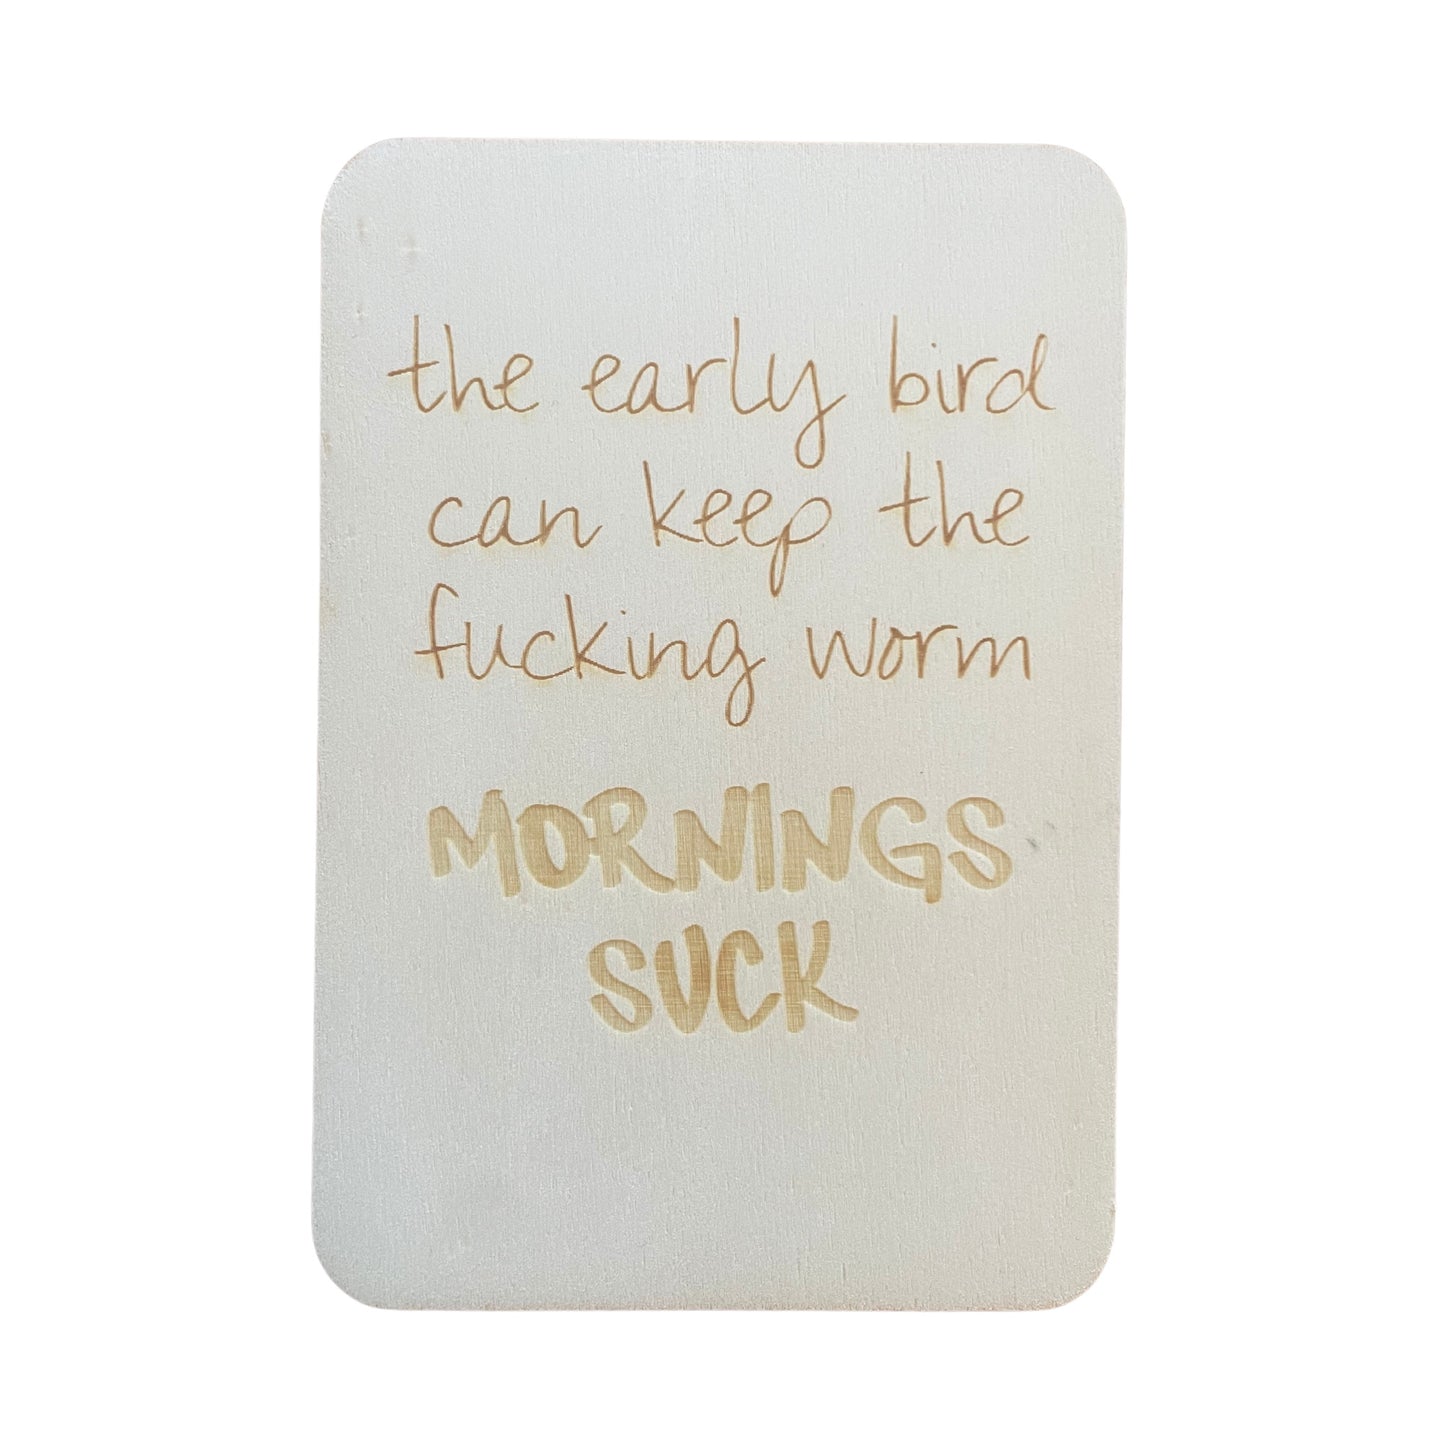 the early bird
can keep the
fucking worm
MORNINGS
SUCK